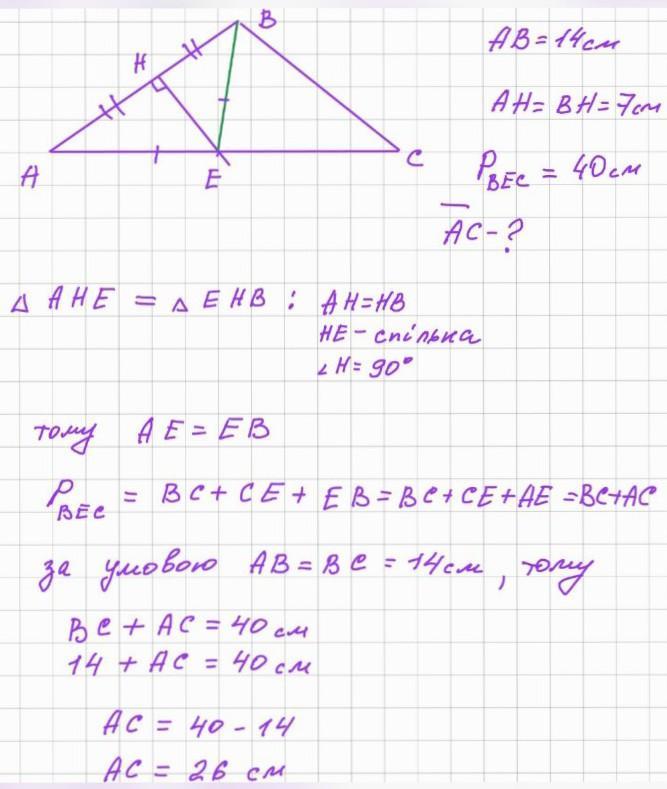 B
H
A
E
C
AB = 14 см
AH = BH = 7 см
P_BEC = 40 см
AC - ?
△ AHE = △ EHB : AH = HB
HE - спільна
∠H = 90°
тому AE = EB
P_BEC = BC + CE + EB = BC + CE + AE = BC + AC
за умовою AB = BC = 14 см, тому
BC + AC = 40 см
14 + AC = 40 см
AC = 40 - 14
AC = 26 см